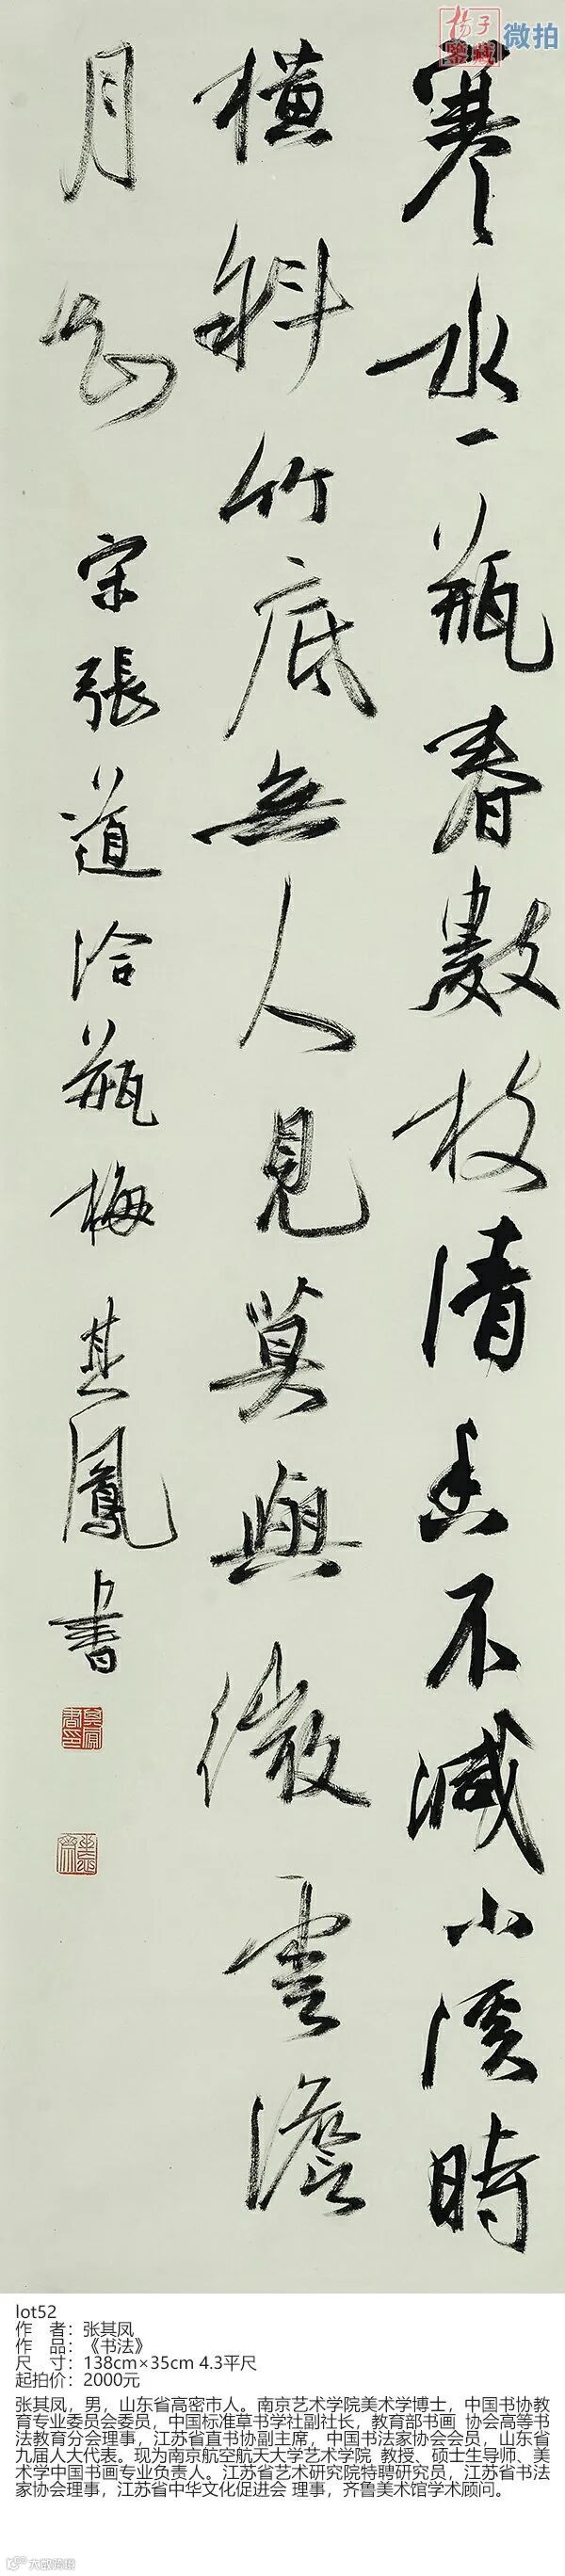 杨子
鉴藏
微拍
寒水一瓶春數枝清香不減小溪時
橫斜竹底無人見莫與微雲澹
月知
宋張道洽瓶梅其鳳書
lot52
作 者：张其凤
作 品：《书法》
尺 寸：138cm×35cm 4.3平尺
起拍价：2000元
张其凤，男，山东省高密市人。南京艺术学院美术学博士，中国书协教
育专业委员会委员，中国标准草书学社副社长，教育部书画 协会高等书
法教育分会理事，江苏省直书协副主席，中国书法家协会会员，山东省
九届人大代表。现为南京航空航天大学艺术学院 教授、硕士生导师、美
术学中国书画专业负责人。江苏省艺术研究院特聘研究员，江苏省书法
家协会理事，江苏省中华文化促进会 理事，齐鲁美术馆学术顾问。